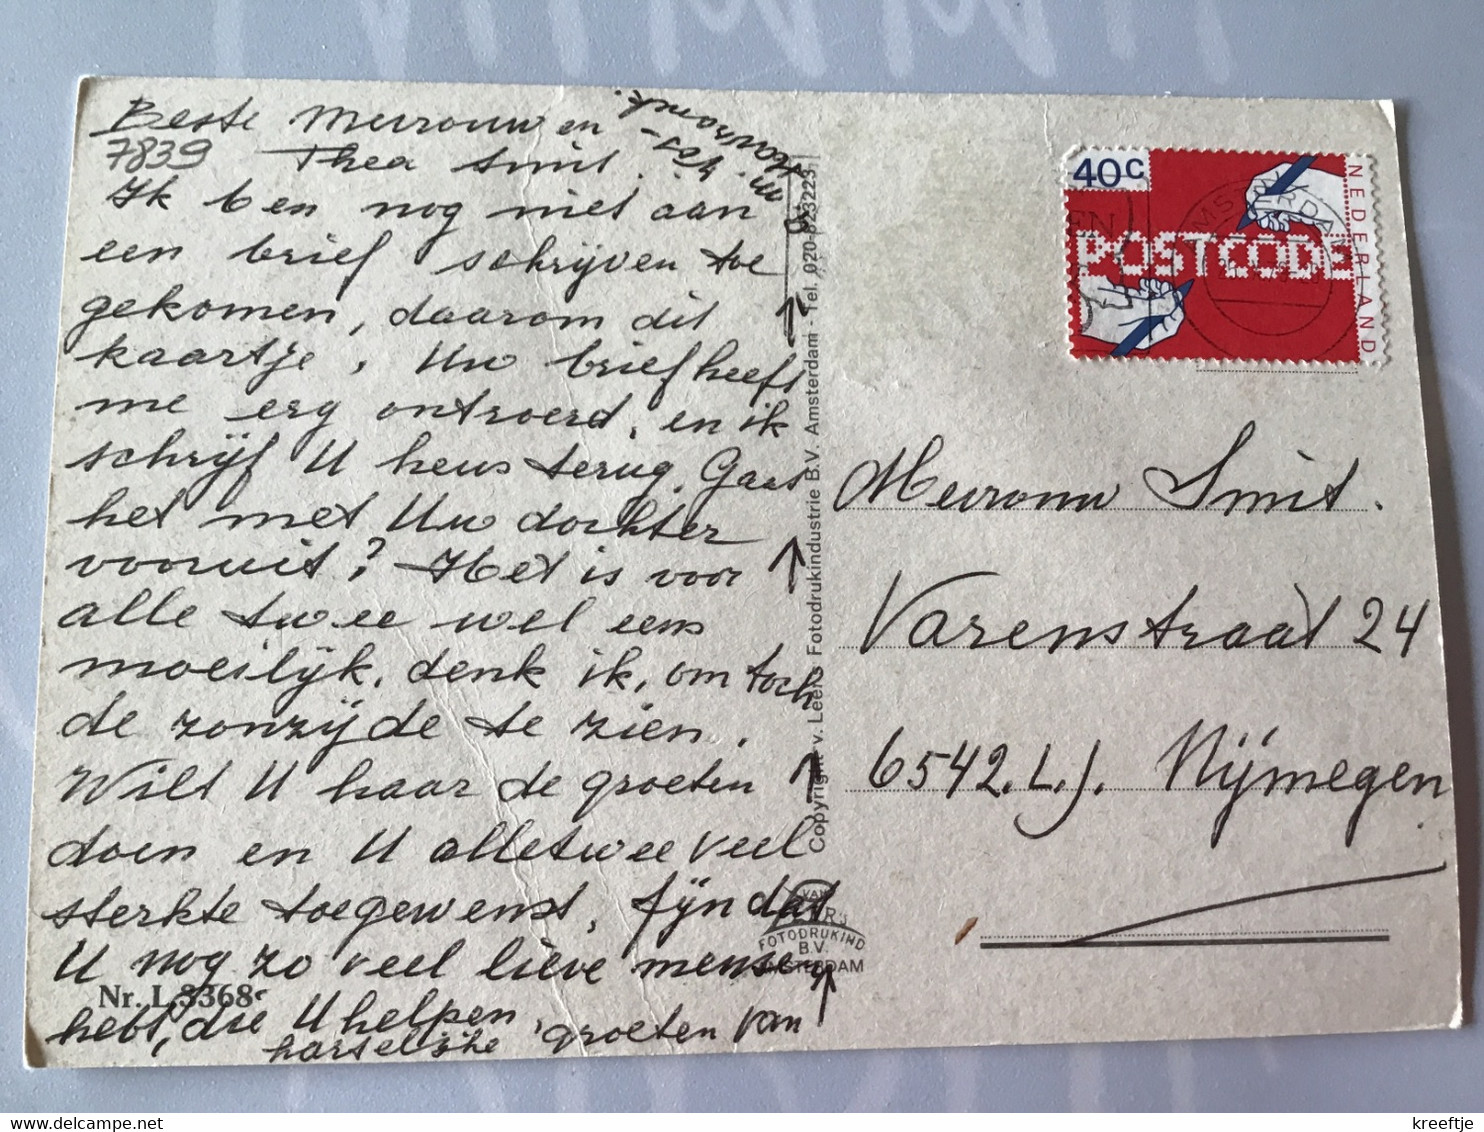 Beste Mevrouw en
7839 Thea Smit.
Ik ben nog niet aan
een brief schrijven toe
gekomen, daarom dit
kaartje. Uw brief heeft
me erg ontroerd, en ik
schrijf U heus terug. Gaat
het met Uw dochter
vooruit? Het is voor
alle twee wel eens
moeilijk, denk ik, om toch
de zonzijde te zien.
Wilt U haar de groeten
doen en U alletwee veel
sterkte toegewenst. Fijn dat
U nog zo veel lieve mensen
Nr. L.3368c
hebt, die U helpen.
hartelijke groeten van
Copyright v. Leer's Fotodrukindustrie B.V. Amsterdam - Tel. 020-823223
VAN LEER'S
FOTODRUKIND
B.V.
AMSTERDAM
40c
NEDERLAND
POSTCODE
AMSTERDAM
Mevrouw Smit.
Varenstraat 24
6542.L.J. Nijmegen
kreeftje